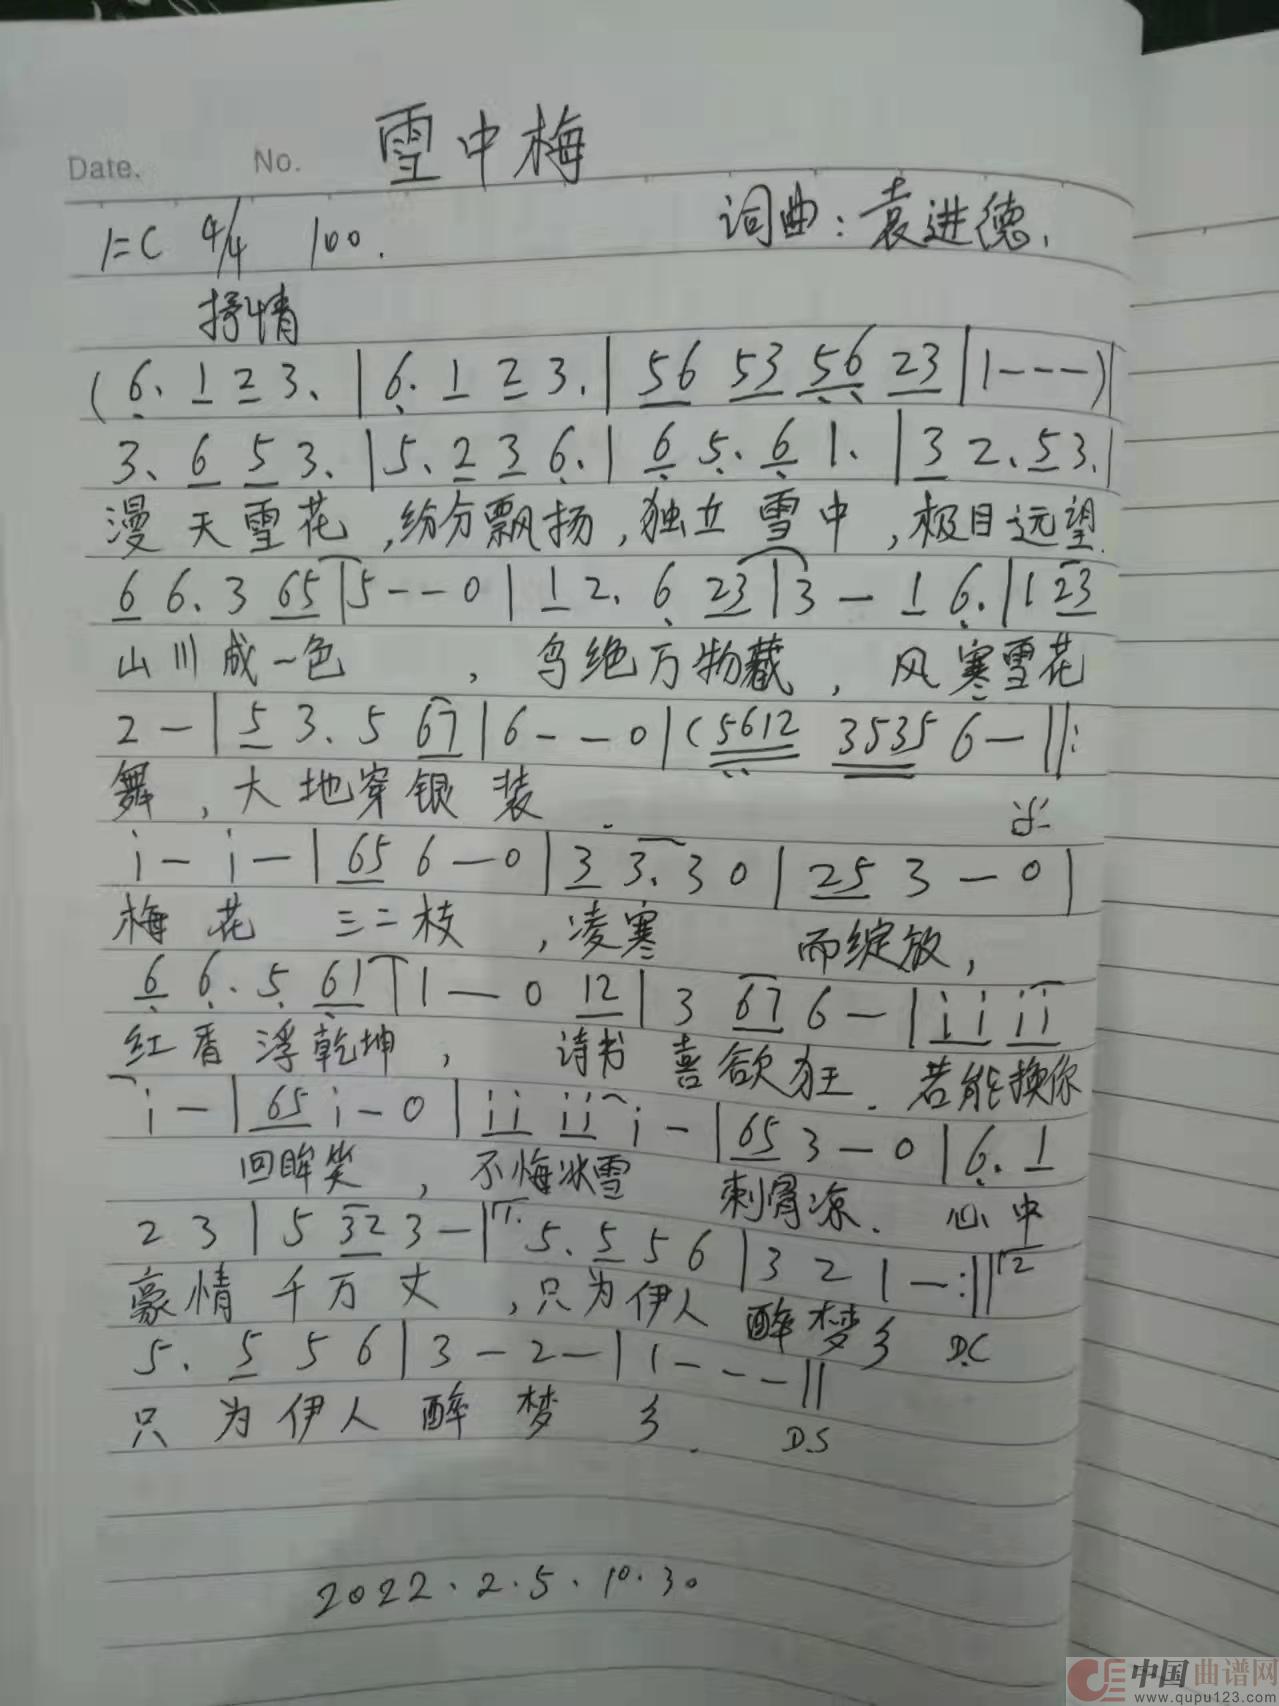 雪中梅
Date. No.
词曲:袁进德.
1=C 4/4 100.
抒情
(6. 1 2 3. | 6. 1 2 3. | 56 53 56 23 | 1---)|
3. 6 5 3. | 5. 2 3 6. | 6 5. 6 1. | 3 2. 5 3. |
漫天雪花,纷分飘扬,独立雪中,极目远望.
6 6. 3 65 | 5--0 | 1 2. 6 23 | 3 - 1 6. | 1 23
山川成一色,鸟绝万物藏,风寒雪花
2 - | 5 3. 5 67 | 6--0 | (5612 3535 6 - ||:
舞,大地穿银装.
i - i - | 65 6 - 0 | 3 3. 3 0 | 25 3 - 0 |
梅花三二枝,凌寒而绽放,
6 6. 5 61 | 1 - 0 12 | 3 67 6 - | i i i i
红香浮乾坤,诗书喜欲狂.若能换你
i - | 65 i - 0 | i i i i i - | 65 3 - 0 | 6. 1
回眸笑,不悔冰雪刺骨凉.心中
2 3 | 5 32 3 - | 1. 5. 5 5 6 | 3 2 1 - :|| 2
豪情千万丈,只为伊人醉梦乡 D.C
5. 5 5 6 | 3 - 2 - | 1 - - - ||
只为伊人醉梦乡. D.S
2022.2.5.10.30
中国曲谱网
www.qupu123.com